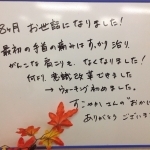 3ヶ月 お世話になりました!
最初の手首の痛みはすっかり治り
がんこな肩こりも、なくなりました!
何より、意識改革できました
→ウォーキング初めました。
さんの"おか
ありがとうござい